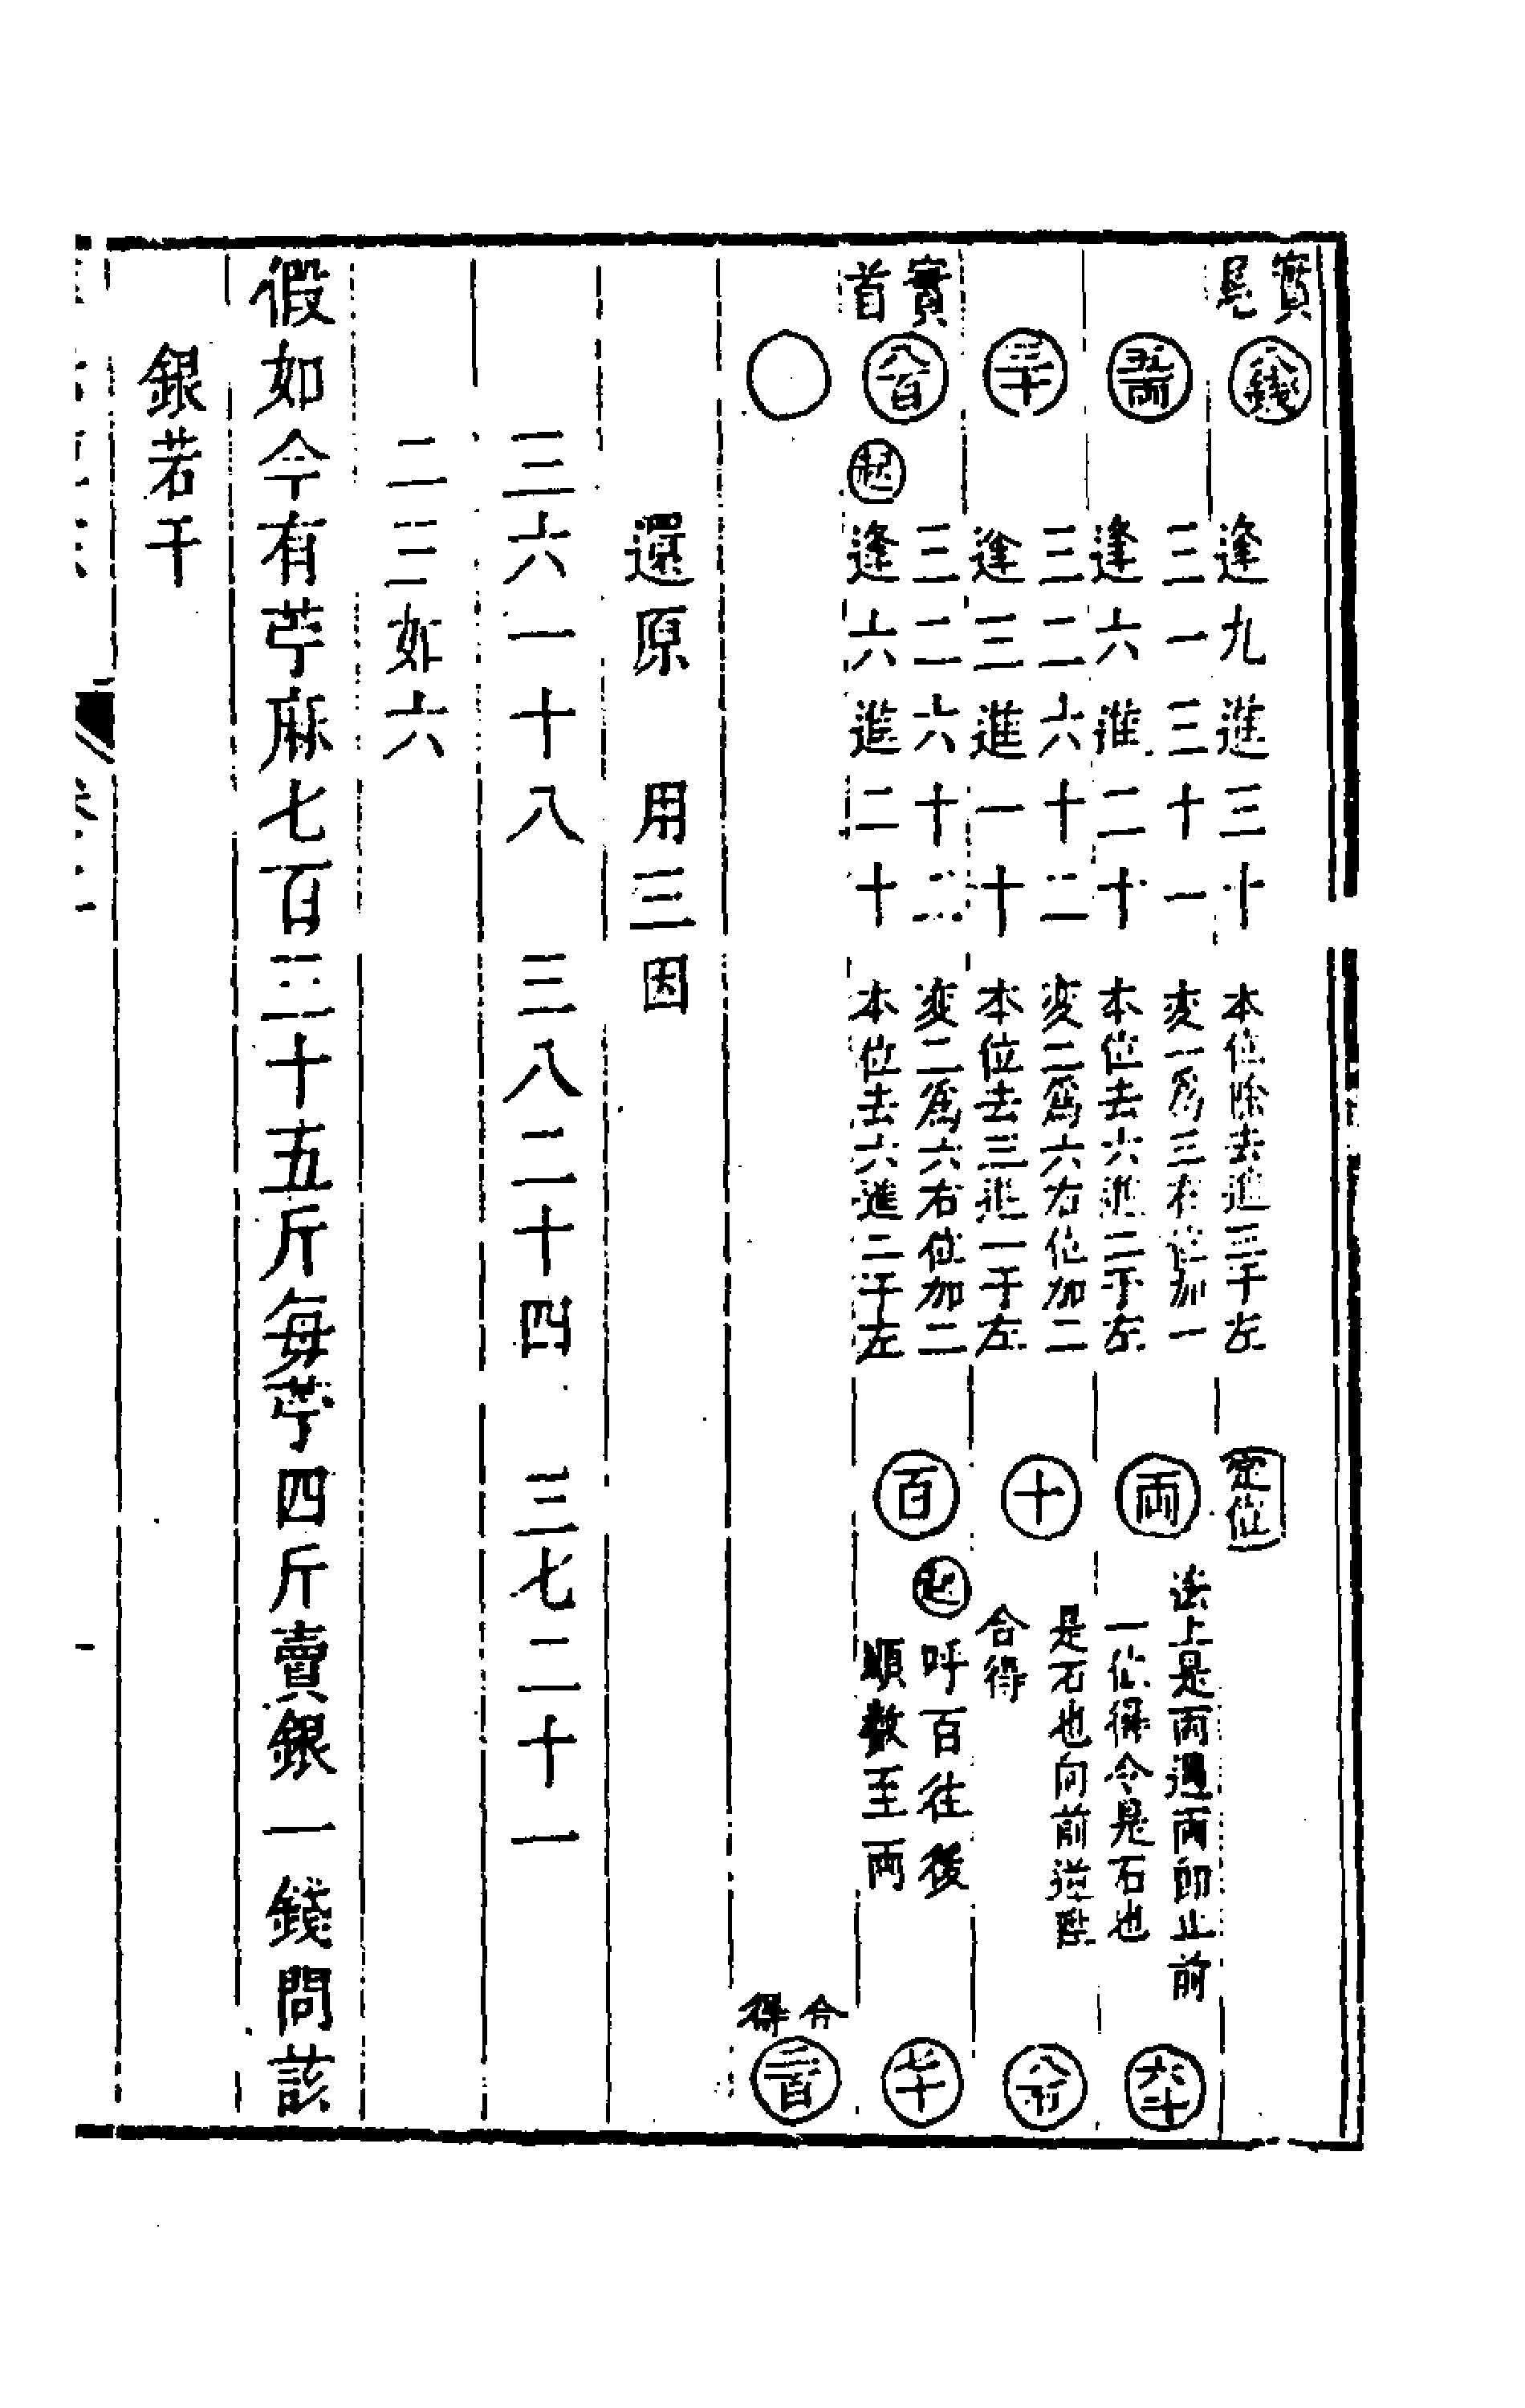 實尾 八錢 逢九進三十 本位除去進三于左 定位
五兩 三一三十一 变一為三右位加一
逢六進二十 本位去六進二于左
兩 法上是兩遇兩即止前
一位得令是石也
六斗
三十 三二六十二 变二為六右位加二
逢三進一十 本位去三進一于左
十 是石也向前逆陞
合得
八石
實首 八百 起 三二六十二 变二為六右位加二
逢六進二十 本位去六進二于左
百 起 呼百往後
順數至兩
七十
○ 合得 二百
還原 用三因
三六一十八 三八二十四 三七二十一
二三如六
假如今有苧麻七百三十五斤每苧四斤賣銀一錢問該
銀若干